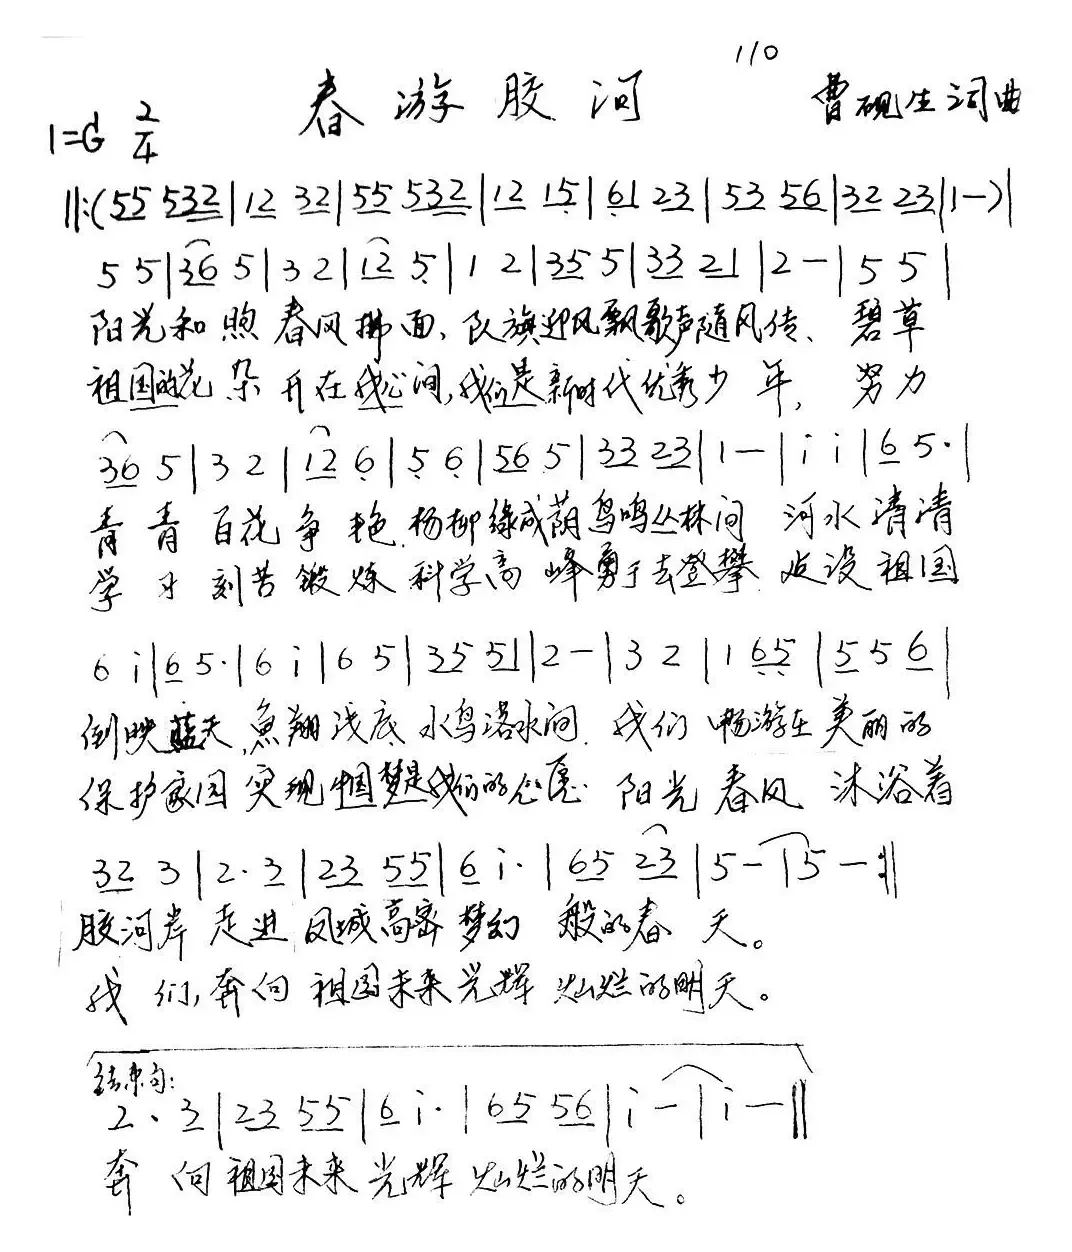 110
春游胶河
曹砚生词曲
1=G 2/4
‖:(55 532|12 32|55 532|12 15|61 23|53 56|32 23|1-)|
5 5|36 5|3 2|12 5|1 2|35 5|33 21|2-|5 5|
阳光和煦春风拂面、队旗迎风飘歌声随风传、碧草
祖国的花朵开在我心间,我们是新时代优秀少年,努力
36 5|3 2|12 6|5 6|56 5|33 23|1-|i i|6 5·|
青青百花争艳.杨柳绿成荫鸟鸣丛林间 河水清清
学习刻苦锻炼科学高峰勇于去登攀 建设祖国
6 i|6 5·|6 i|6 5|35 51|2-|3 2|1 65|5 5 6|
倒映蓝天,魚翔浅底水鸟落水间.我们畅游在美丽的
保护家园实现中国梦是我们的心愿 阳光春风沐浴着
32 3|2·3|23 55|6 i·|65 23|5-|5-:‖
胶河岸走进凤城高密梦幻般的春天。
我们,奔向祖国未来光辉灿烂的明天。
结束句:
2·3|23 55|6 i·|65 56|i-|i-‖
奔向祖国未来光辉灿烂的明天。